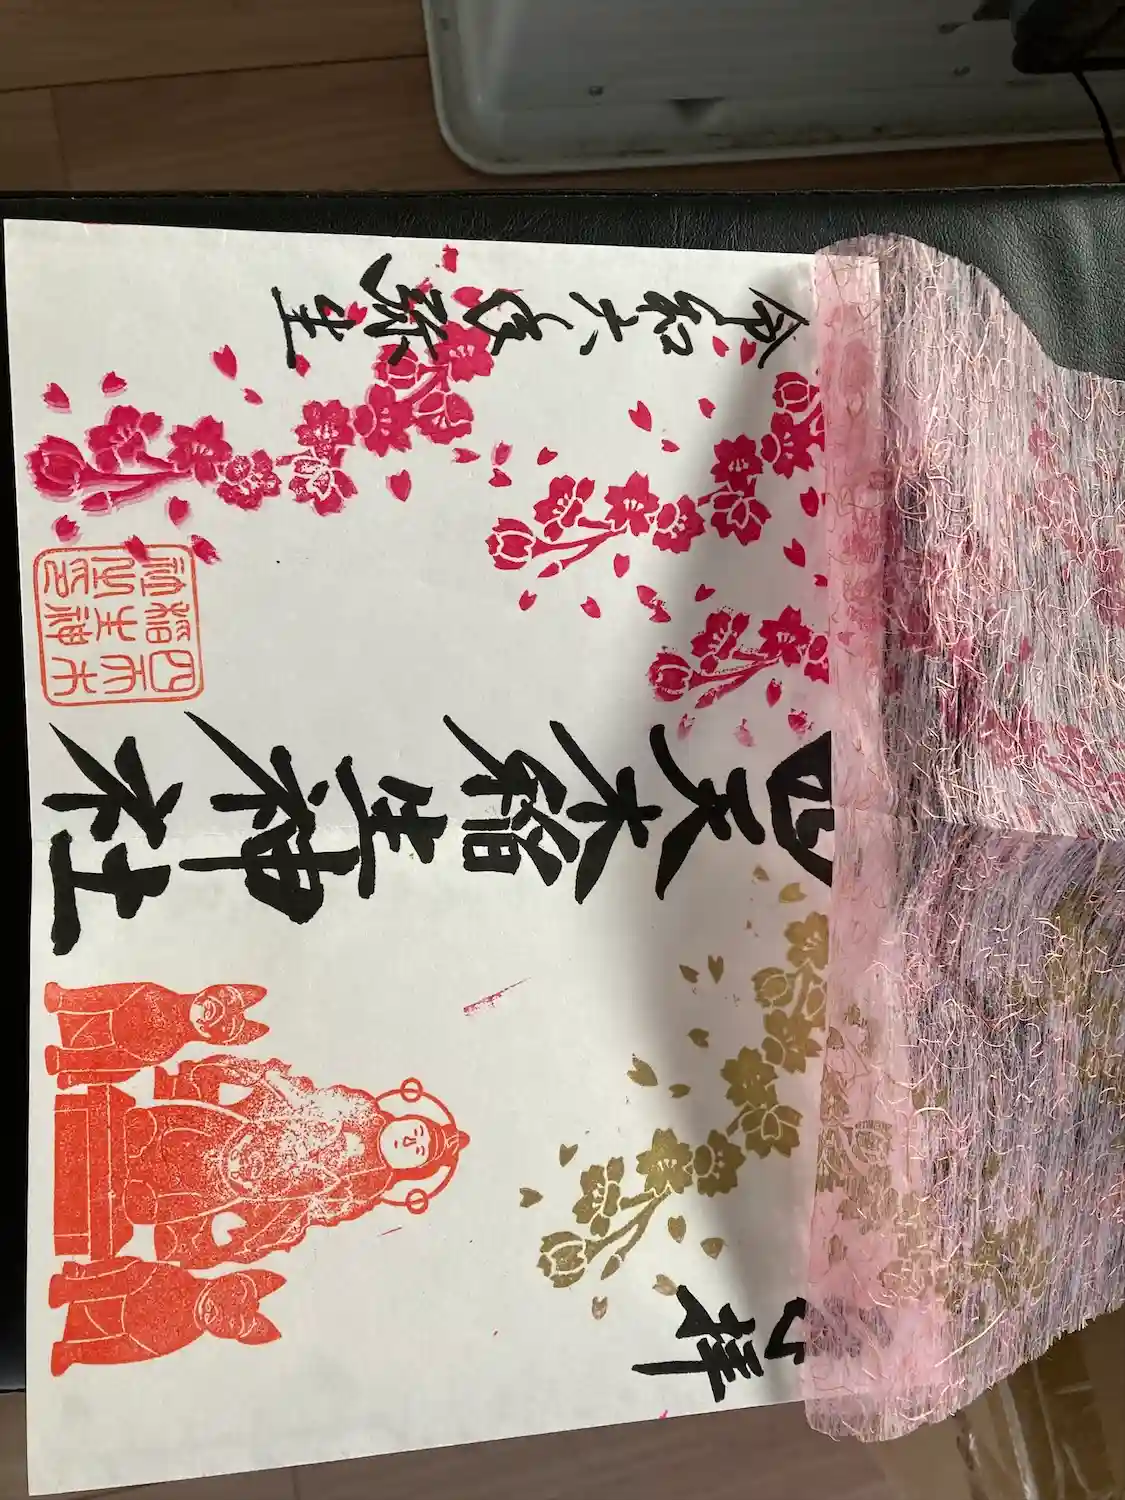 拝
四天木稲生神社
令和六年弥生
四天木
稲生神
社之